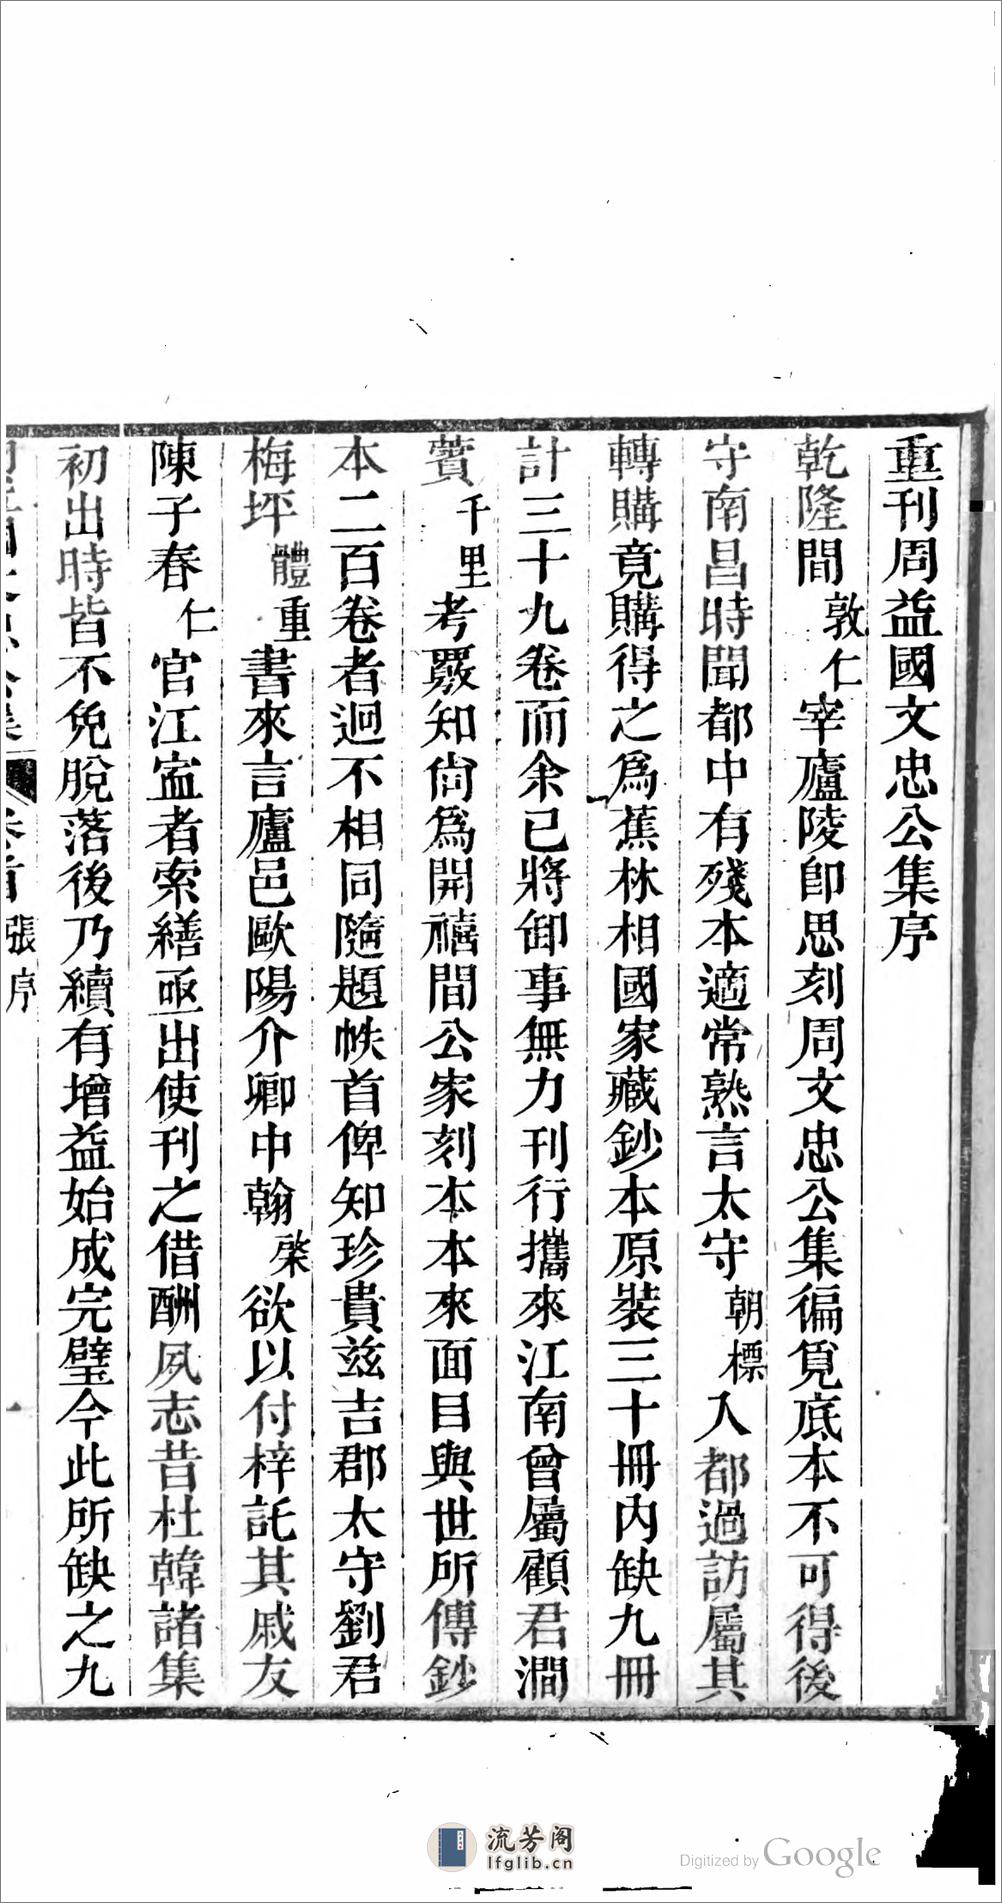 重刊周益國文忠公集序
乾隆間敦仁宰廬陵卽思刻周文忠公集徧覓底本不可得後
守南昌時聞都中有殘本適常熟言太守朝標入都過訪屬其
轉購竟購得之爲蕉林相國家藏鈔本原裝三十冊內缺九冊
計三十九卷而余已將卸事無力刊行攜來江南曾屬顧君澗
薲千里考覈知尙爲開禧間公家刻本本來面目與世所傳鈔
本二百卷者迥不相同隨題帙首俾知珍貴兹吉郡太守劉君
梅坪體重書來言廬邑歐陽介卿中翰棨欲以付梓託其戚友
陳子春仁官江寍者索繕亟出使刊之借酬夙志昔杜韓諸集
初出時皆不免脫落後乃續有增益始成完璧今此所缺之九
卷首 張序 一
流芳阁
lfglib.cn
Digitized by Google